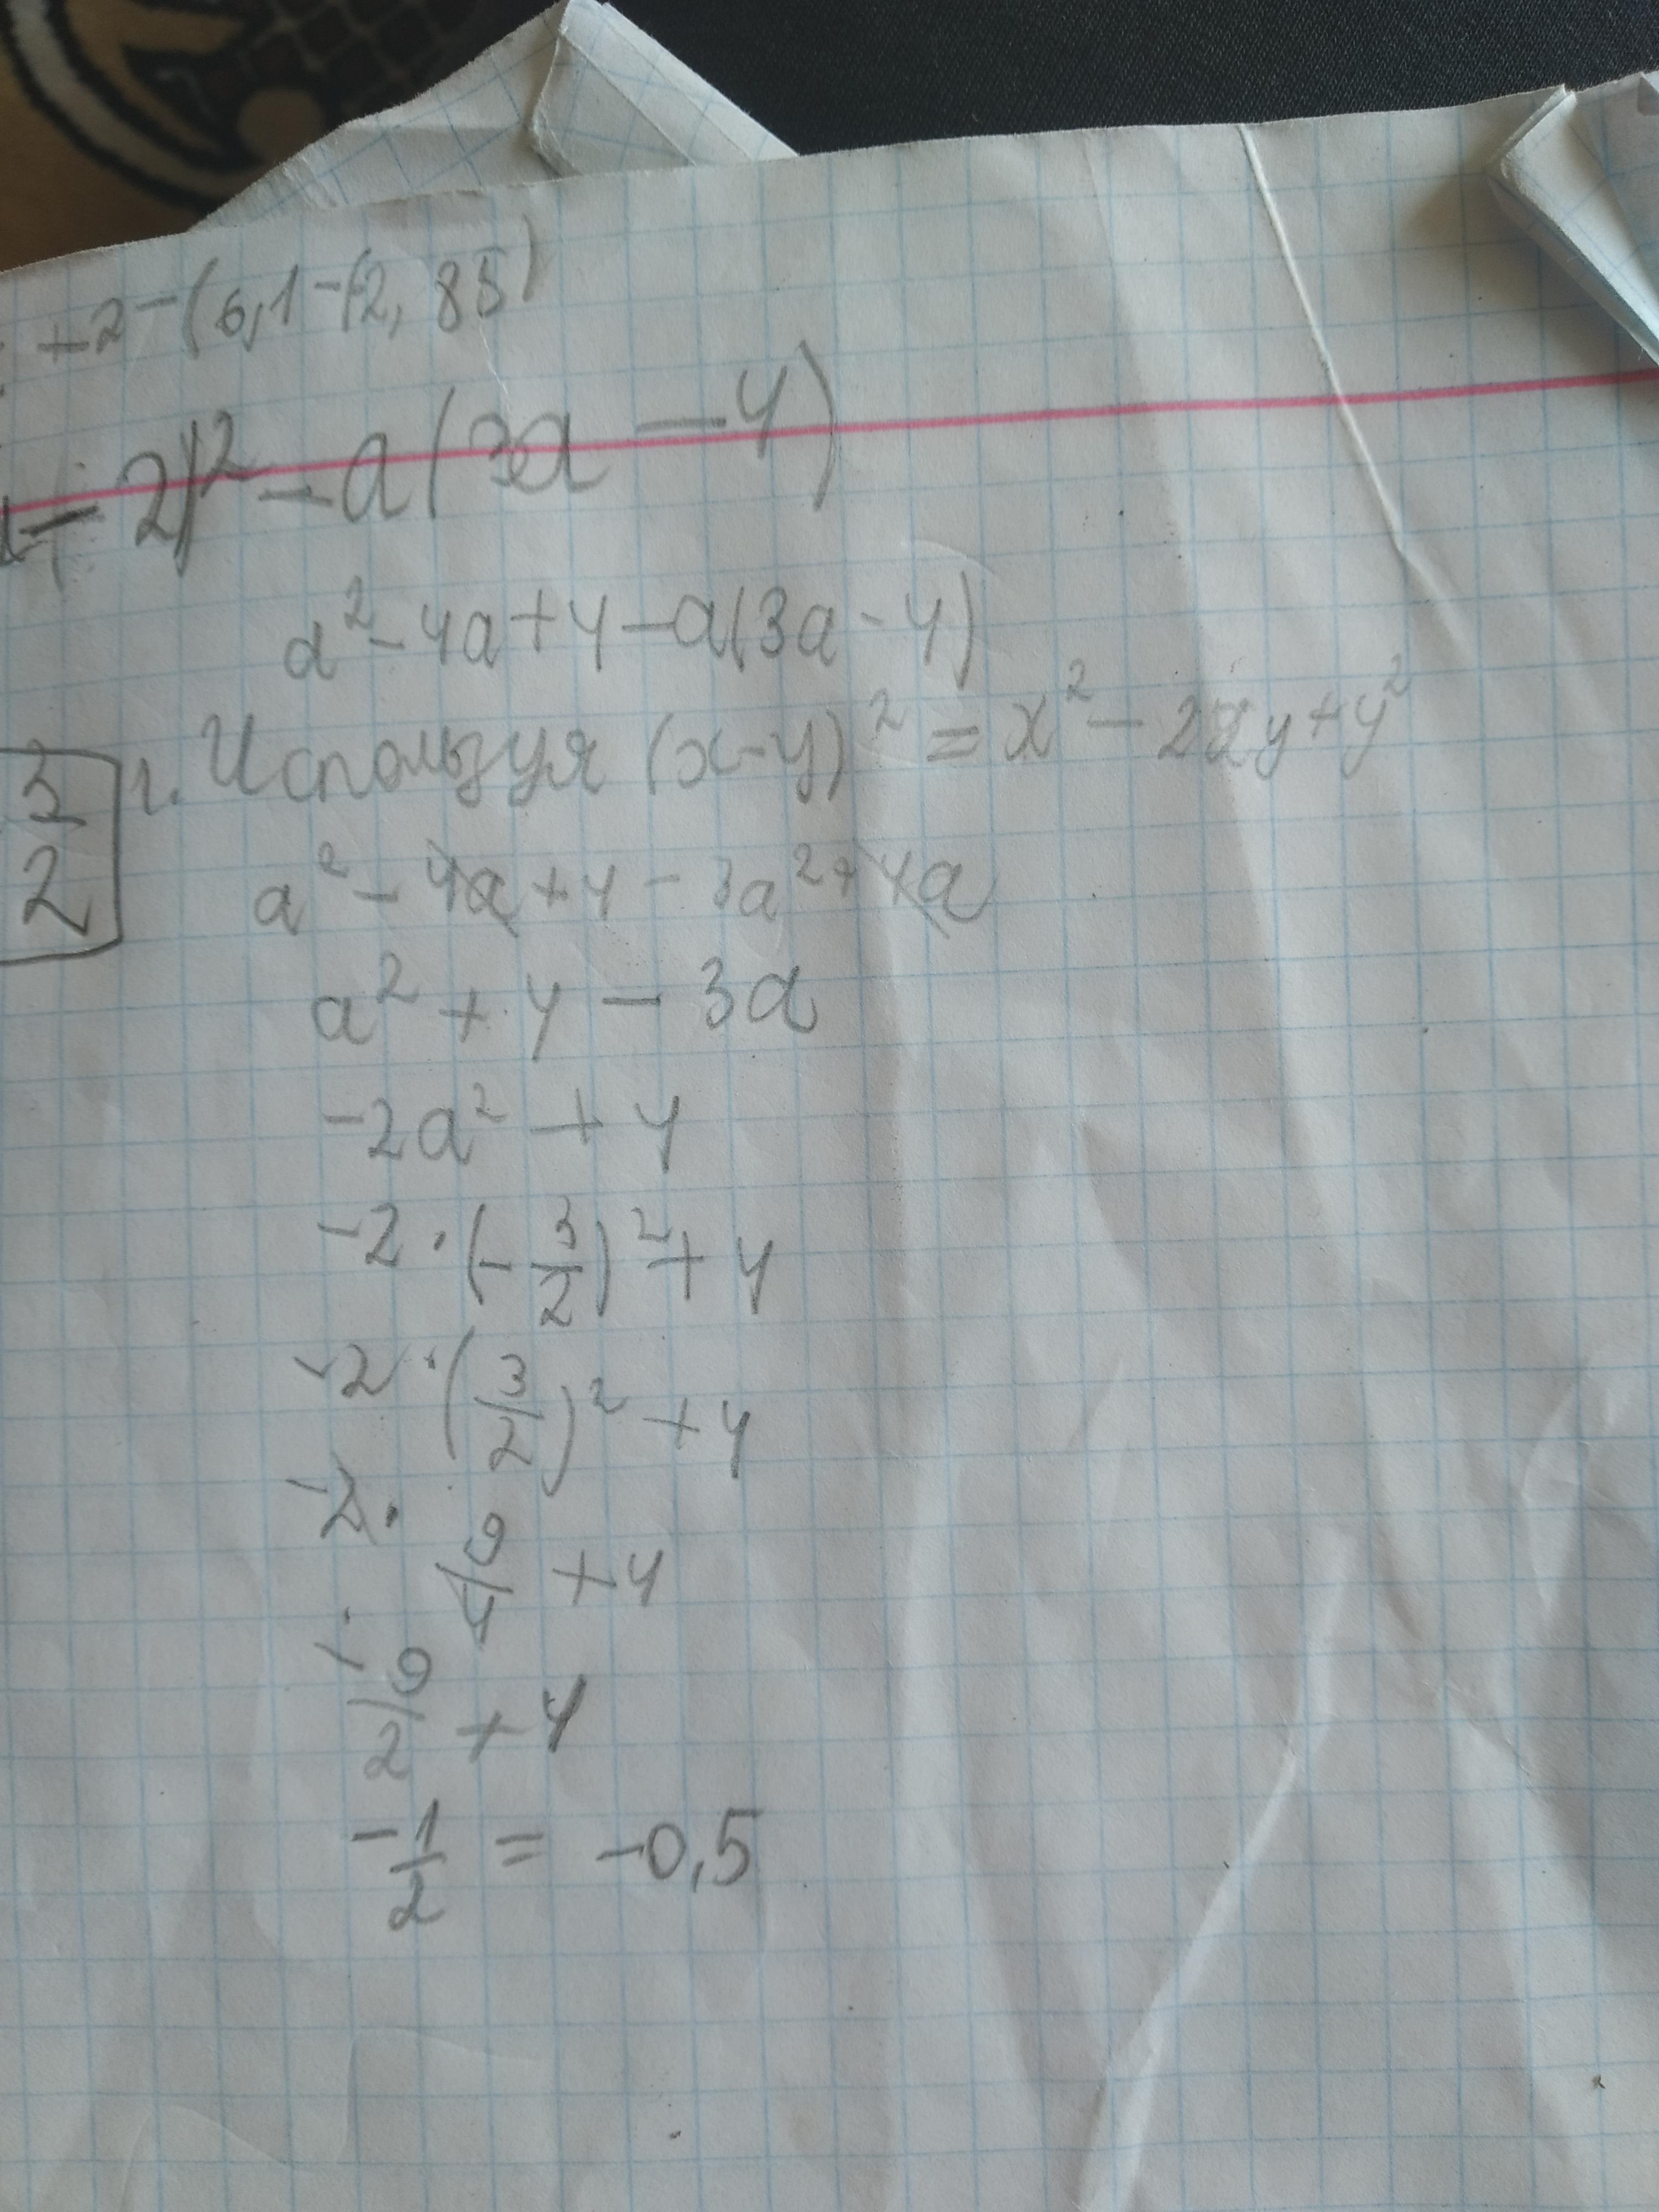 +2-(6,1-(2,85)
- 2)² - a(3a - 4)
a² - 4a + 4 - a(3a - 4)
3
2
1. Используя (x-y)² = x² - 2xy + y²
a² - 4a + 4 - 3a² + 4a
a² + 4 - 3a
-2a² + 4
-2 · (-3/2)² + 4
-2 · (3/2)² + 4
-2 · 9/4 + 4
- 9/2 + 4
-1/2 = -0,5